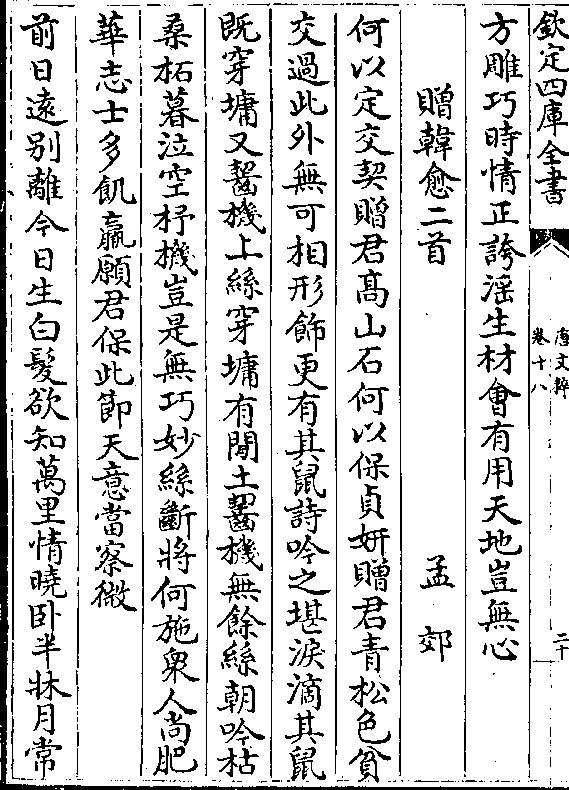 欽定四庫全書
唐文粹
卷十八
二十
方雕巧時情正誇淫生材會有用天地豈無心
贈韓愈二首
孟郊
何以定交契贈君髙山石何以保貞妍贈君青松色貧
交過此外無可相形飾更有其鼠詩吟之堪淚滴其鼠
既穿墉又齧機上絲穿墉有閒土齧機無餘絲朝吟枯
桑柘暮泣空杼機豈是無巧妙絲斷將何施衆人尚肥
華志士多飢羸願君保此節天意當察微
前日遠别離今日生白髪欲知萬里情曉卧半牀月常